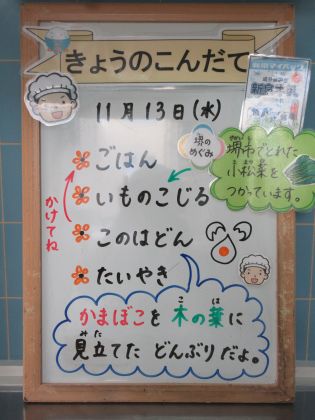 きょうのこんだて
11月13日(水)
堺の
めぐみ
堺市でとれた
小松菜を
つかっています。
ごはん
いものこじる
かけてね
このはどん
たいやき
かまぼこを 木の葉に
こ は
見立てた どんぶりだよ。
みた